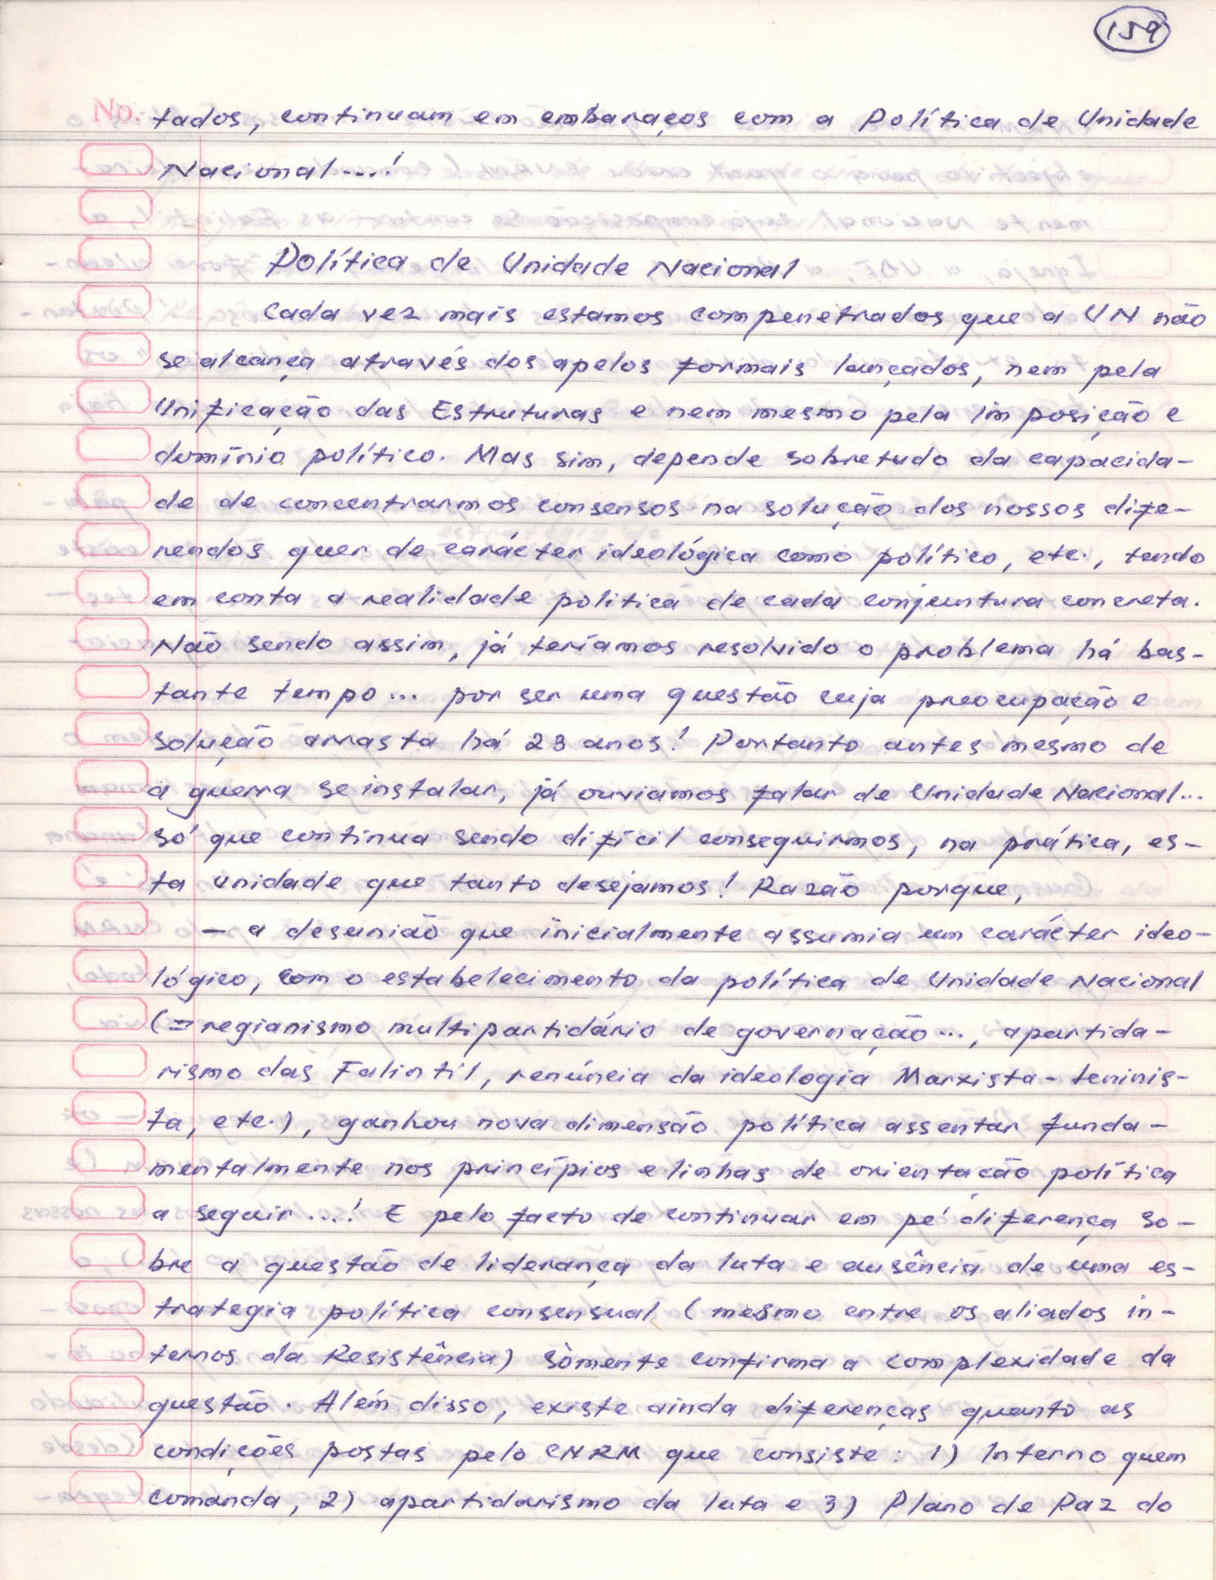 159
No. tados, continuam em embaraços com a Política de Unidade
Nacional...!
Política de Unidade Nacional
Cada vez mais estamos compenetrados que a UN não
se alcança através dos apelos formais lançados, nem pela
Unificação das Estruturas e nem mesmo pela imposição e
domínio político. Mas sim, depende sobretudo da capacida-
de de concentrarmos consensos na solução dos nossos dife-
rendos quer de carácter ideológica como político, etc., tendo
em conta a realidade política de cada conjuntura concreta.
Não sendo assim, já teríamos resolvido o problema há bas-
tante tempo... por ser uma questão cuja preocupação e
solução arrasta há 23 anos! Portanto antes mesmo de
a guerra se instalar, já ouviamos falar de Unidade Nacional...
só que continua sendo difícil conseguirmos, na prática, es-
ta unidade que tanto desejamos! Razão porque,
- a desunião que inicialmente assumia um carácter ideo-
lógico, com o estabelecimento da política de Unidade Nacional
(= regianismo multipartidário de governação..., apartida-
rismo das Falintil, renúncia da ideologia Marxista-leninis-
ta, etc.), ganhou nova dimensão política assentar funda-
mentalmente nos princípios e linhas de orientação política
a seguir...! E pelo facto de continuar em pé diferença so-
bre a questão de liderança da luta e ausência de uma es-
trategia política consensual (mesmo entre os aliados in-
ternos da Resistência) sòmente confirma a complexidade da
questão. Além disso, existe ainda diferenças quanto as
condições postas pelo CNRM que consiste: 1) Interno quem
comanda, 2) apartidarismo da luta e 3) Plano de Paz do